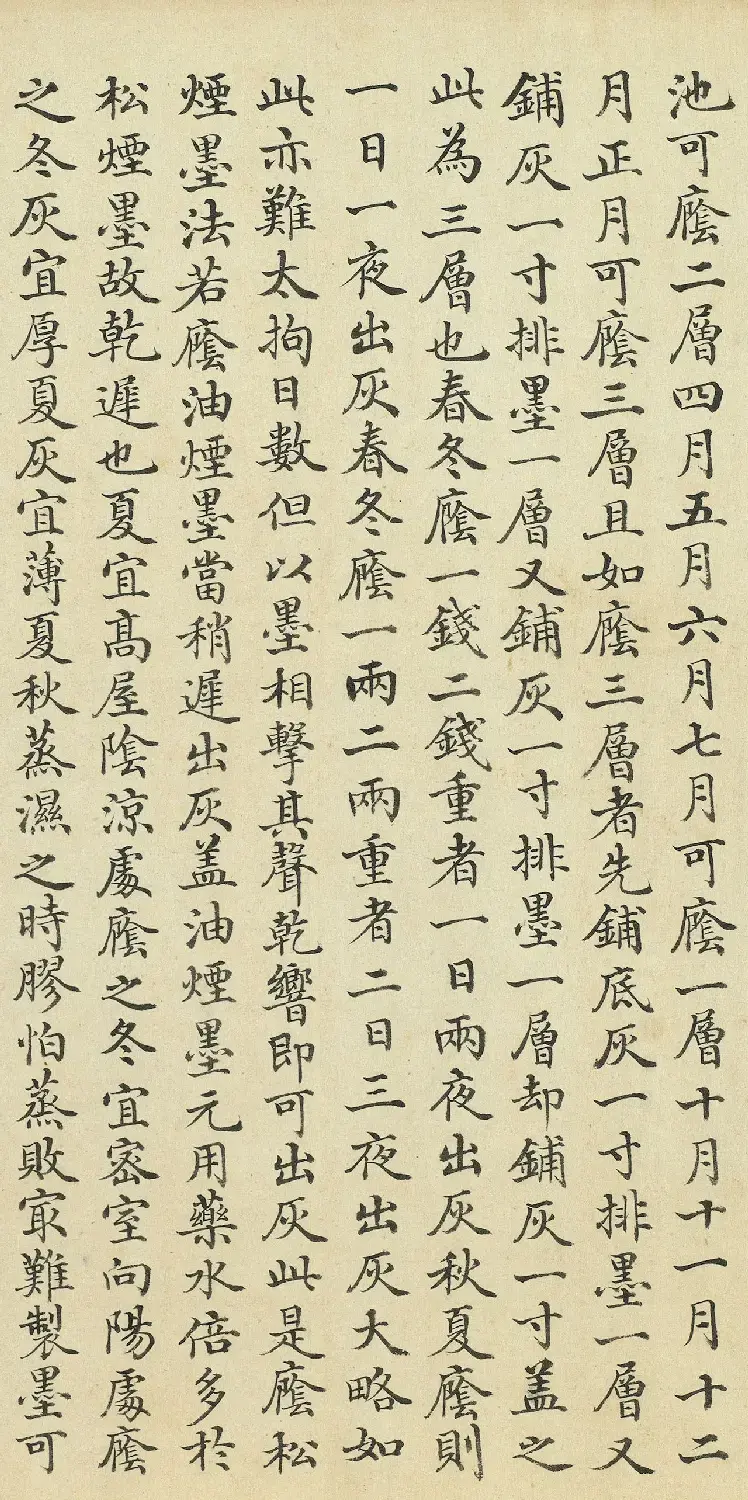 池可廕二層四月五月六月七月可廕一層十月十一月十二
月正月可廕三層且如廕三層者先鋪底灰一寸排墨一層又
鋪灰一寸排墨一層又鋪灰一寸排墨一層却鋪灰一寸盖之
此為三層也春冬廕一錢二錢重者一日兩夜出灰秋夏廕則
一日一夜出灰春冬廕一兩二兩重者二日三夜出灰大略如
此亦難太拘日數但以墨相擊其聲乾響即可出灰此是廕松
煙墨法若廕油煙墨當稍遲出灰盖油煙墨元用藥水倍多於
松煙墨故乾遲也夏宜髙屋陰涼處廕之冬宜密室向陽處廕
之冬灰宜厚夏灰宜薄夏秋蒸濕之時膠怕蒸敗㝡難製墨可